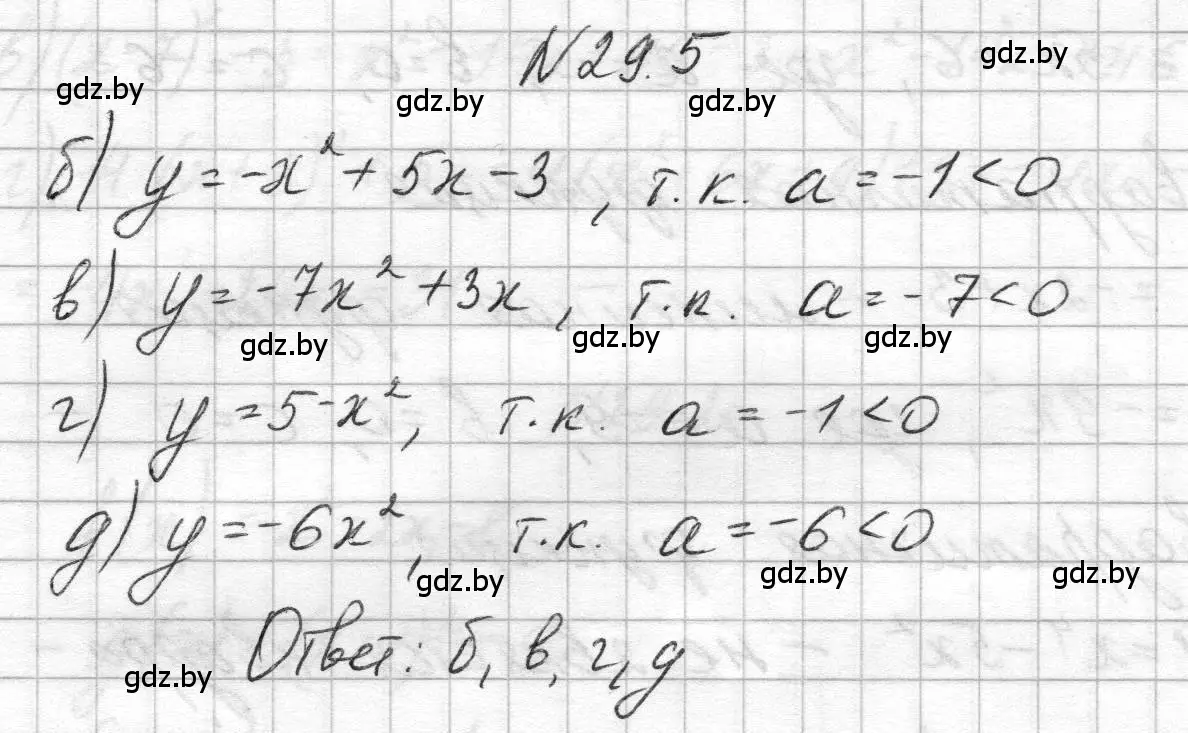 N 29.5
gdz.by
gdz.by
gdz.by
gdz.by
б) y = -x² + 5x - 3, т.к. a = -1 < 0
в) y = -7x² + 3x, т.к. a = -7 < 0
gdz.by
gdz.by
gdz.by
г) y = 5 - x², т.к. a = -1 < 0
д) y = -6x², т.к. a = -6 < 0
gdz.by
gdz.by
gdz.by
Ответ: б, в, г, д
gdz.by